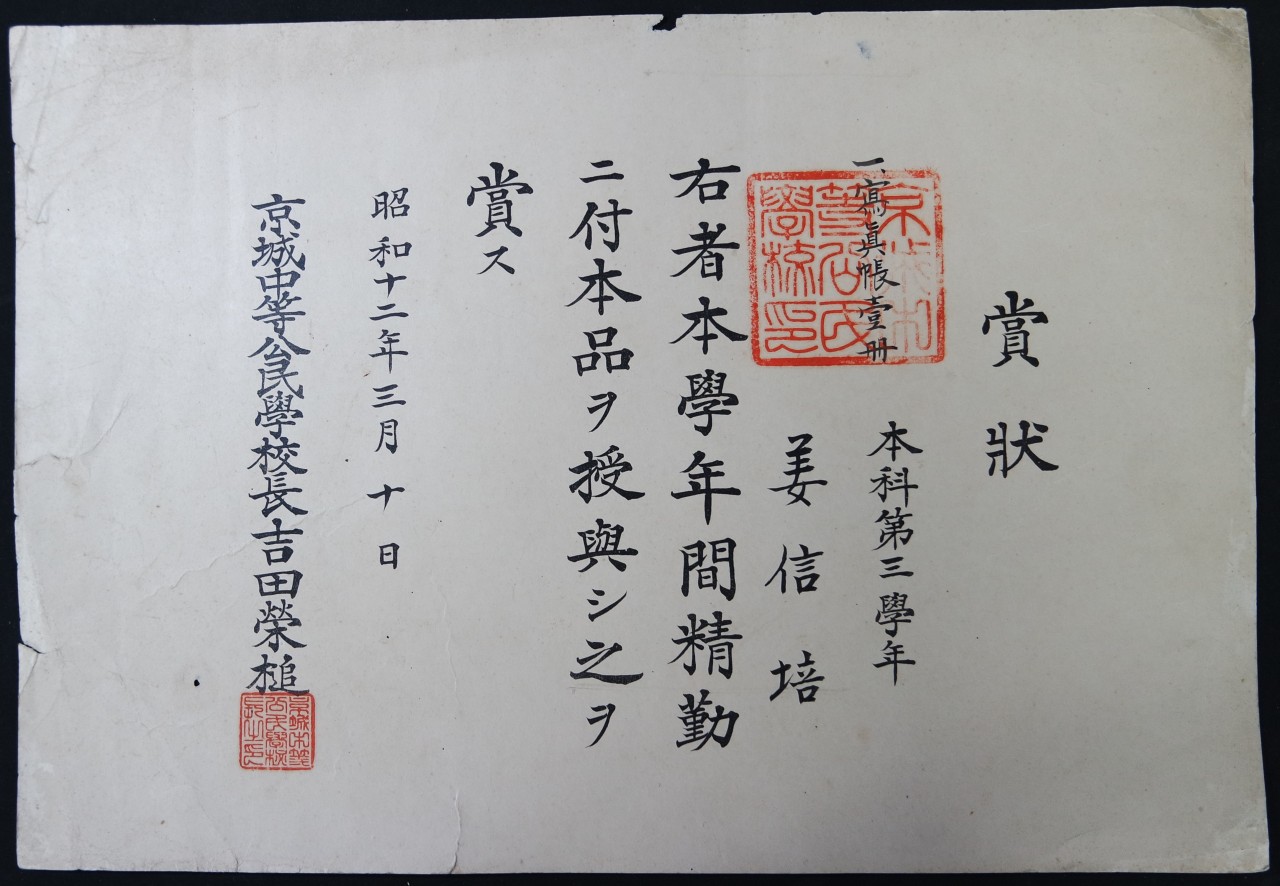 賞狀
一、寫眞帳壹册
本科第三學年
姜信培
右者本學年間精勤
ニ付本品ヲ授與シ之ヲ
賞ス
昭和十二年三月十日
京城中等公民學校長吉田榮槌
京城中
等公民
學校印
京城中等
公民學校
長之印